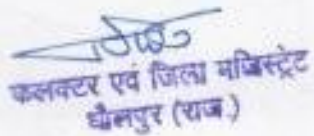 कलक्टर एवं जिला मजिस्ट्रेट
धौलपुर (राज.)